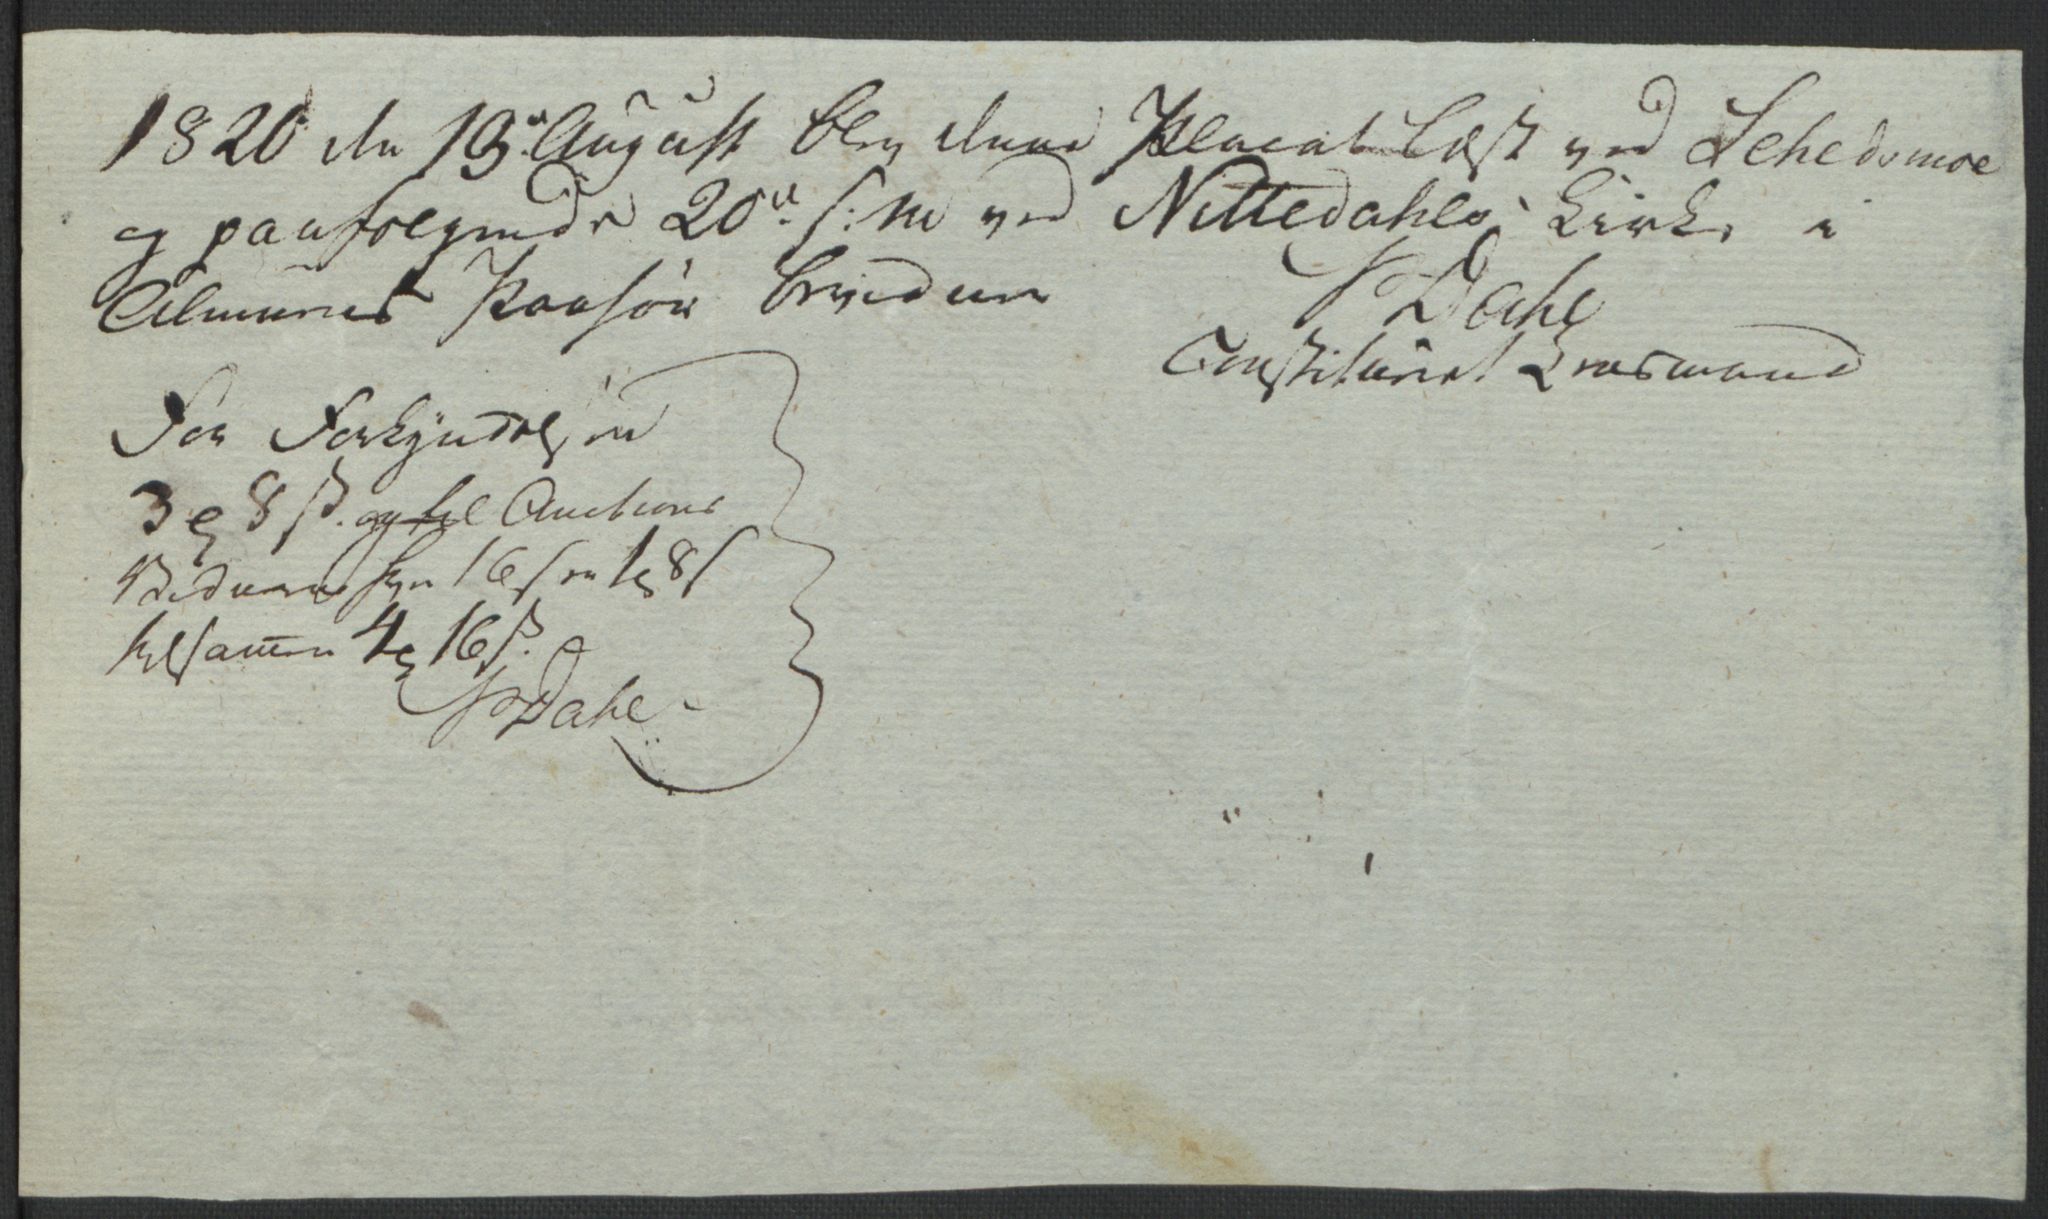 1820 den 19de August blev denne Placat læst ved Schedsmoe
og paafølgende 20de s: m ved Nittedahls Kirke i
Almues Paahør bevidner
P Dahl
Constitueret Lensmand
For Forkyndelsen
3 8 ß. og til Auctions
16 ß 1 8 ß
tilsamen 4 16 ß.
P Dahl